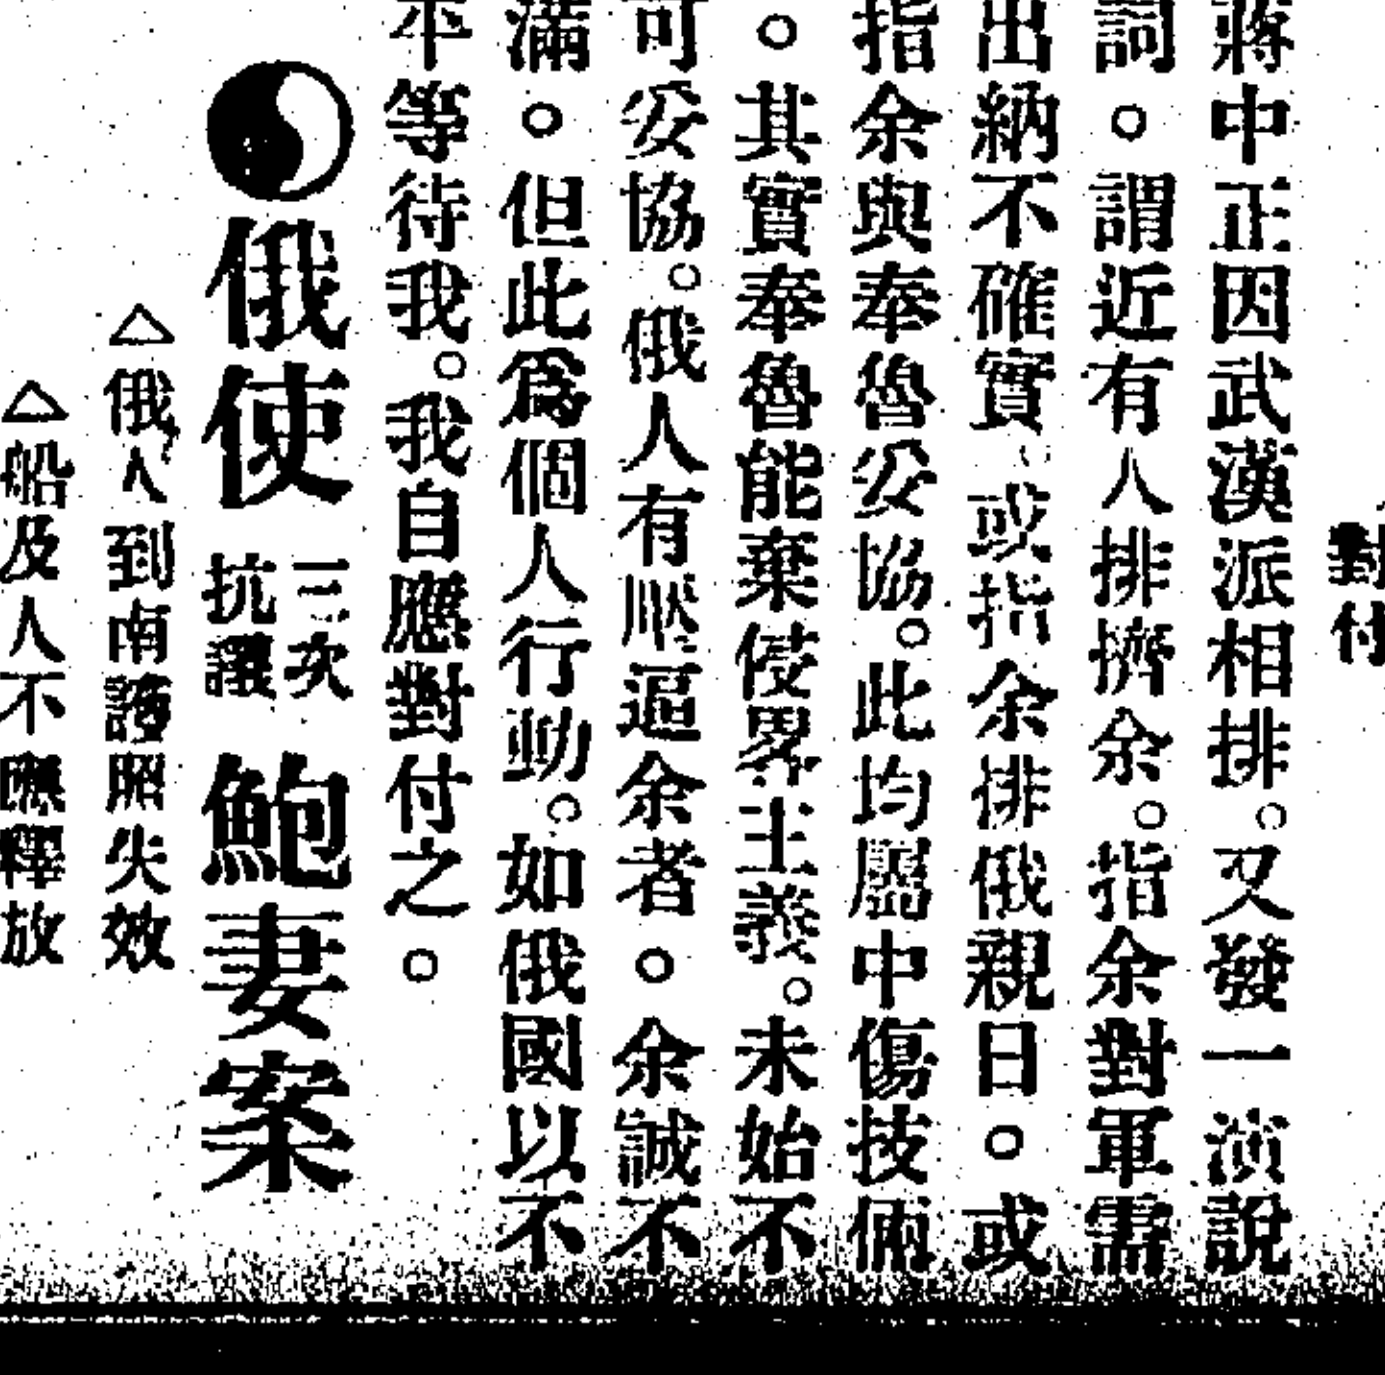 對付
蔣中正因武漢派相排。又發一演說
詞。謂近有人排擠余。指余對軍需
出納不確實、或指余排俄親日。或
指余與奉魯妥協。此均屬中傷技倆
。其實奉魯能棄侵畧主義。未始不
可妥協。俄人有壓逼余者。余誠不
滿。但此爲個人行動。如俄國以不
平等待我。我自應對付之。
俄使三次抗議鮑妻案
△俄人到南護照失效
△船及人不應釋放